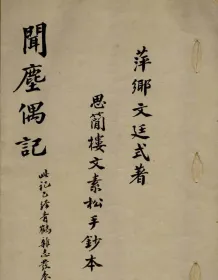 萍鄉文廷式著
思簡樓文素松手鈔本
聞塵偶記
此記已經青鶴雜志登